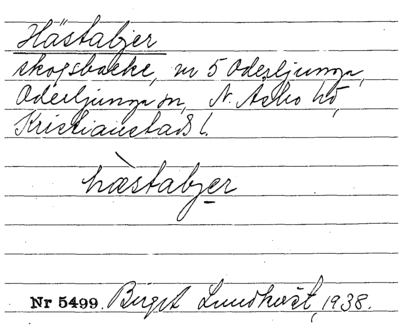 Hästabjer
skogsbacke, nr 5 Oderljunga,
Oderljunga sn, N. Åsbo hd,
Kristianstads l.
hæ̀stabjer
Nr 5499. Birgit Lundkvist, 1938.